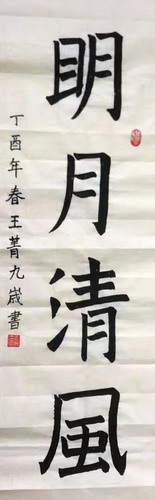 明月清風
丁酉年春王菁九歲書